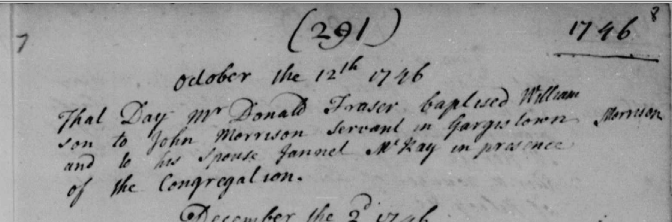 7 (291) 1746 8
October the 12th 1746
That Day Mr Donald Fraser baptised William
son to John Morrison servant in Gargistown Morrison
and to his spouse Jannet McKay in presence
of the Congregation.
December the 2d 1746